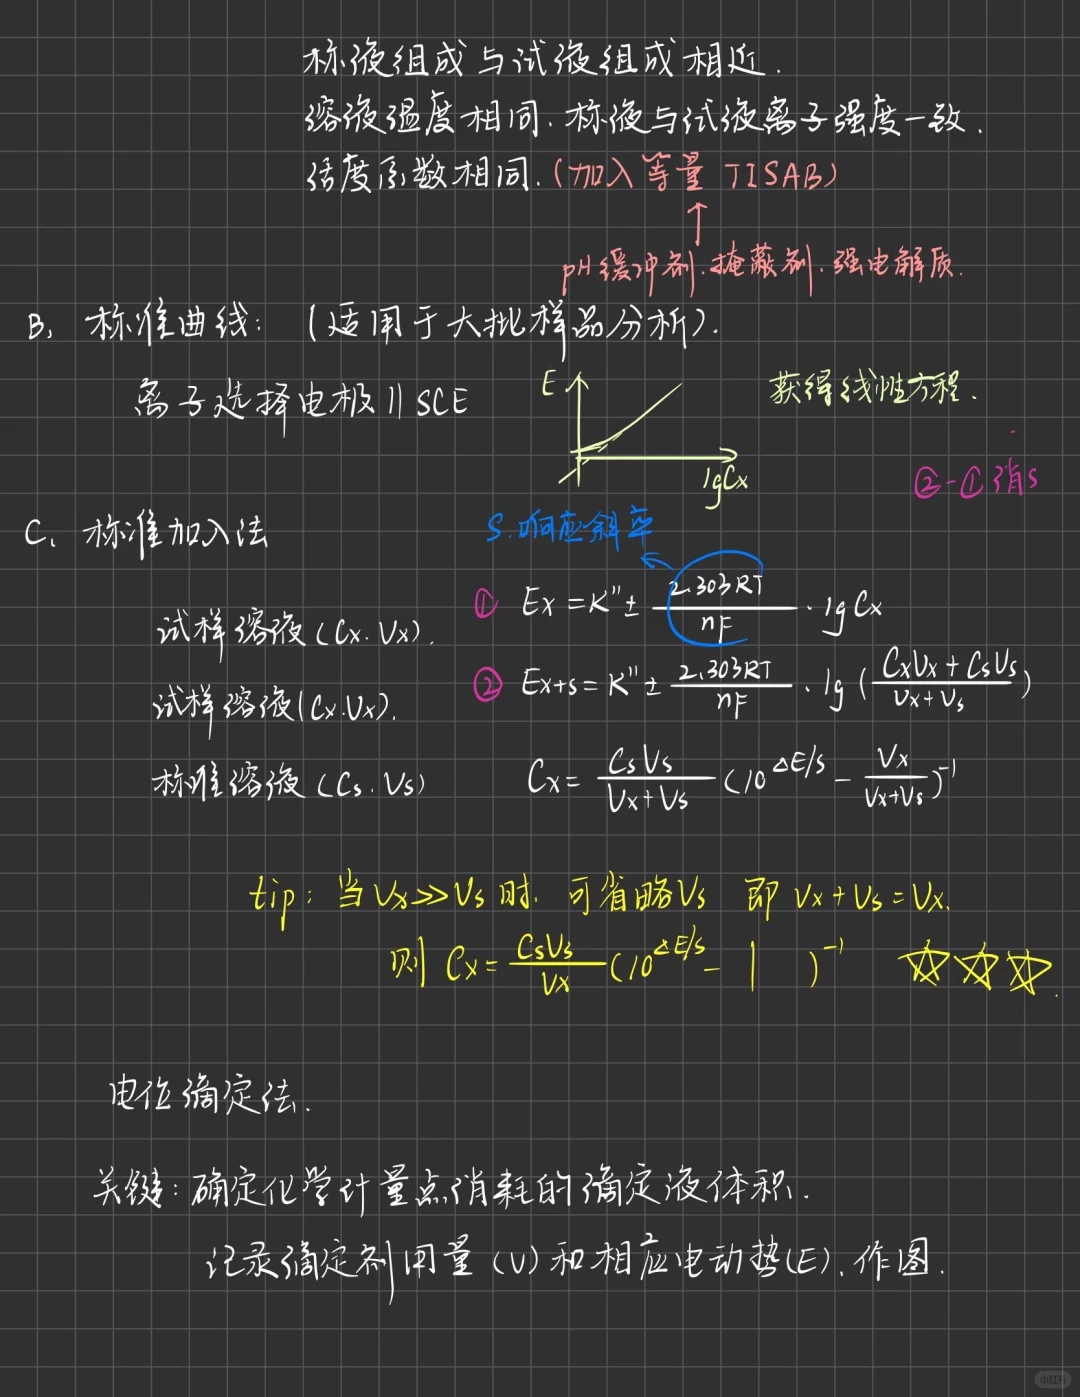 标液组成与试液组成相近.
溶液温度相同.标液与试液离子强度一致.
活度系数相同.(加入等量 TISAB)
↑
pH缓冲剂.掩蔽剂.强电解质.
B. 标准曲线: (适用于大批样品分析).
离子选择电极 || SCE
E
lgCx
获得线性方程.
②-①消S
C. 标准加入法
S.响应斜率
试样溶液(Cx.Vx).
① Ex = K" ± 2.303RT/nF · lg Cx
试样溶液(Cx.Vx).
② Ex+s = K" ± 2.303RT/nF · lg (CxVx + CsVs/Vx+Vs)
标准溶液(Cs.Vs)
Cx = CsVs/Vx+Vs (10^ΔE/s - Vx/Vx+Vs)^-1
tip: 当Vx>>Vs时. 可省略Vs 即 Vx+Vs=Vx.
则 Cx = CsVs/Vx (10^ΔE/s - 1 )^-1 ☆☆☆.
电位滴定法.
关键:确定化学计量点消耗的滴定液体积.
记录滴定剂用量(V)和相应电动势(E).作图.
小红书